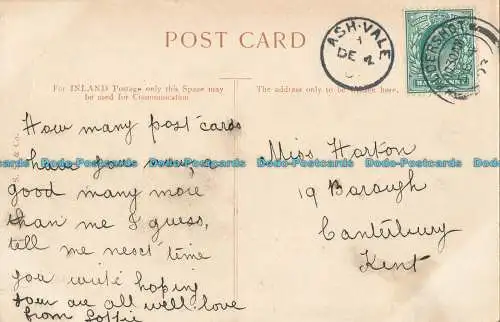 POST CARD
ASH-VALE
DE 2
ALDERSHOT
For INLAND Postage only this Space may
be used for Communication
The address only to be written here.
How many post cards
have you now, a
good many more
than me I guess,
tell me next time
you write hoping
your are all well. love
from Lottie
Miss Horton
19 Borough
Canterbury
Kent
Dodo-Postcards Dodo-Postcards Dodo-Postcards Dodo-Postcards Dodo-Postcards